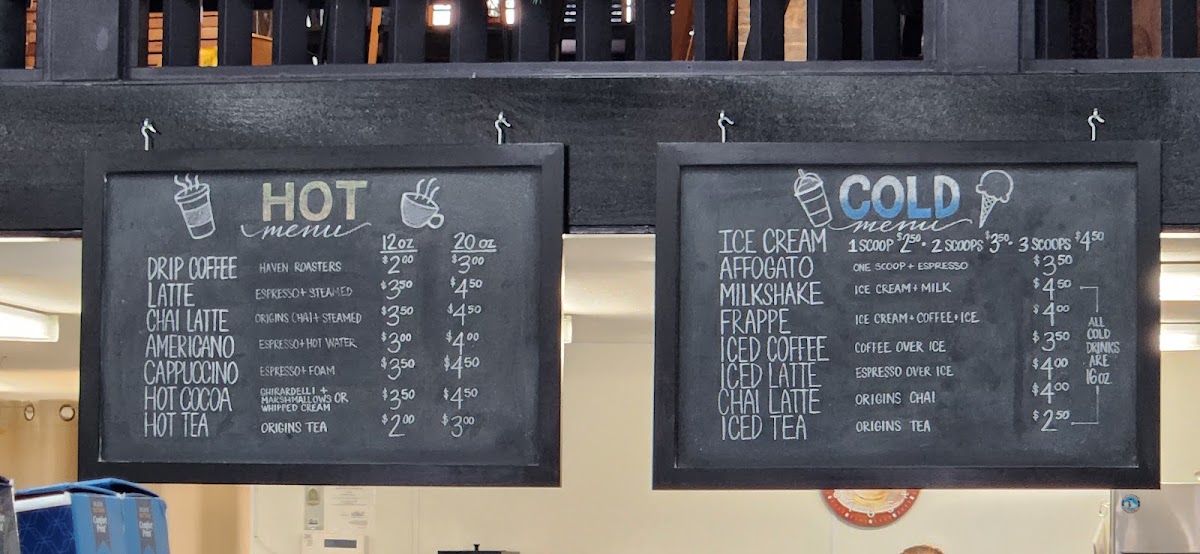 HOT
menu
12 oz 20 oz
DRIP COFFEE HAVEN ROASTERS $2.00 $3.00
LATTE ESPRESSO + STEAMED $3.50 $4.50
CHAI LATTE ORIGINS CHAI + STEAMED $3.50 $4.50
AMERICANO ESPRESSO + HOT WATER $3.00 $4.00
CAPPUCCINO ESPRESSO + FOAM $3.50 $4.50
HOT COCOA GHIRARDELLI + MARSHMALLOWS OR WHIPPED CREAM $3.50 $4.50
HOT TEA ORIGINS TEA $2.00 $3.00
COLD
menu
ICE CREAM 1 SCOOP $2.50 · 2 SCOOPS $3.50 · 3 SCOOPS $4.50
AFFOGATO ONE SCOOP + ESPRESSO $3.50
MILKSHAKE ICE CREAM + MILK $4.50
FRAPPE ICE CREAM + COFFEE + ICE $4.00
ICED COFFEE COFFEE OVER ICE $3.50
ICED LATTE ESPRESSO OVER ICE $4.00
CHAI LATTE ORIGINS CHAI $4.00
ICED TEA ORIGINS TEA $2.50
ALL
COLD
DRINKS
ARE
16 oz